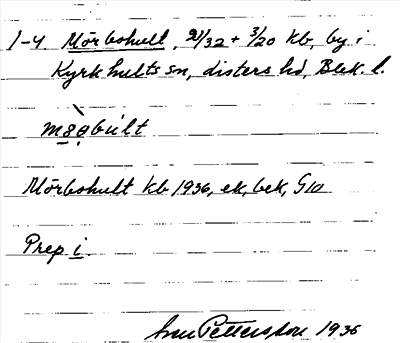 1-4 Mörbohult, 21/32 + 3/20 kb, by i
Kyrkhults sn, Listers hd, Blek. l.
Mörbohult kb 1936, ek, bek, G10
Prep i.
Pettersson 1936